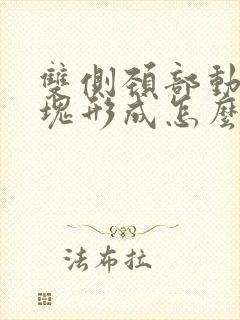 雙側頸部動
塊形成怎麼
法布拉